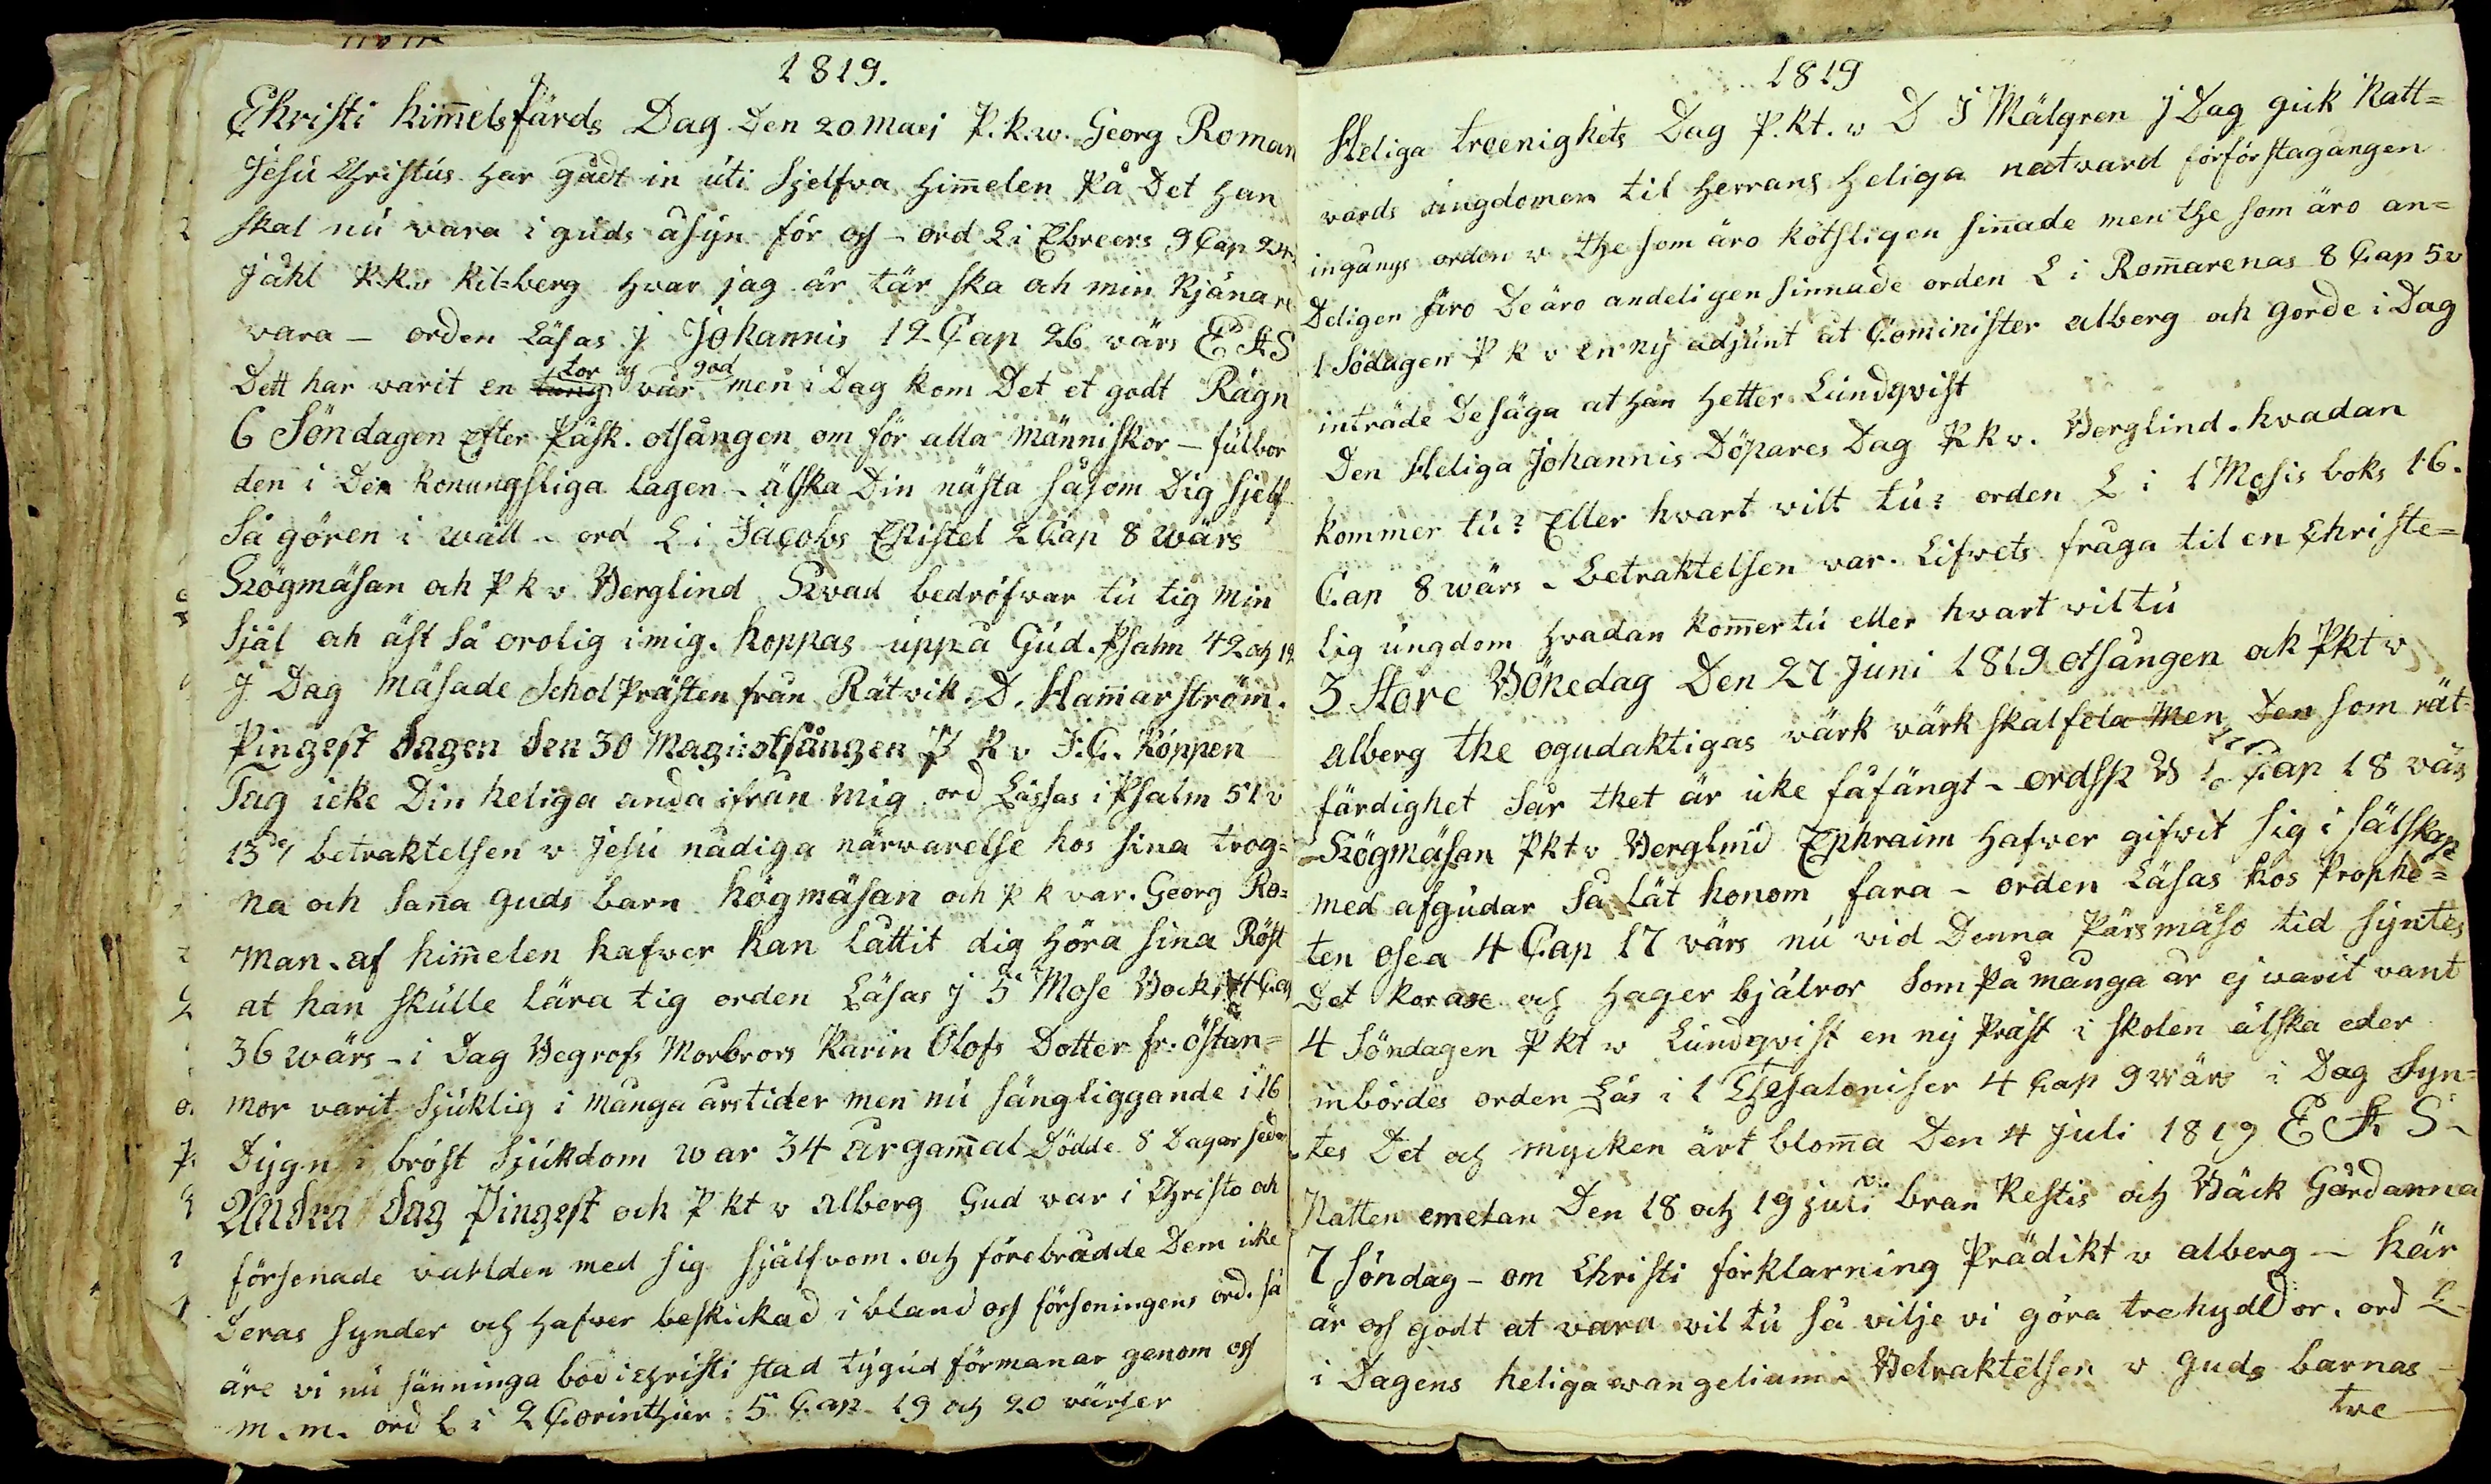 1819.
Christi himelsfärds Dag Den 20 maei P. k. w. Georg Roman
Jesu Christus har gådt in uti Sjelfva Himelen På Det Han
skal nu vara i guds åsyn för oss - ord L i Ebreers 9 Cap 24
Jåhl P.k.v Kil=berg Hvar jag är tär ska ok min Kjänare
vara - orden Läsas j Johannis 12 Cap 26 värs E A S
Dett har varit en tor och god vår men i Dag kom Det et godt Rägn
6 Söndagen Efter Påsk. otsången om för alla Människor - fulbor
den i Den konungsliga lagen - älska Din nästa såsom Dig sjelf
Så gören i wäll - ord L i Jacobs Epistel 2 Cap 8 wärs
Högmäsan och P k v Berglind Hvad bedröfvar tu tig min
Själ ok äst Så orolig i mig. hoppas uppå Gud. Psalm 42 och 12
J Dag Mäsade Schol Prästen från Rätvik D. Hamarström.
Pingest Dagen Den 30 Maji otsången P k v J. C. Köppen
Tag icke Din heliga anda ifrån mig ord Lässas i Psalm 51 v
13de betraktelsen v Jesu nådiga närvarelse hos sina trog=
na och Sana Guds barn högmäsan och p k var. Georg Ro=
man. af himelen hafver han låttit dig höra sina Röst
at han skulle lära tig orden Läsas j 5 Mose Bock 4 Cap
36 wärs - i Dag Begrofs Morbrors Karin Olofs Dotter fr. östan=
mor varit Sjuklig i många årstider men nu sängliggande i 16
Dygn i bröst Sjukdom war 34 år gamal Dödde 8 Dagar seden
Andra Dag Pingest och P kt v alberg Gud var i Christo ok
försonade varlden med sig själfvom. och förebrådde Dem icke
Deras synder och hafver beskickad i bland oss försoningens ord. så
äre vi nu sänninga bod i Christi stad ty gud förmanar genom oss
m. m. ord L i 2 Corinthier 5 Cap 19 och 20 värser
1819
Heliga treenighets Dag P. kt. v D J Mälgren j Dag gick Natt=
vards ungdomen til Herrans Heliga natvard förförstagången
ingångs orden v the som äro kötsligen sinade men the som äro an=
Deligen siro De äro andeligen sinnade orden L i Romarenas 8 Cap 5 v
1 Södagen P k v en ny adjunt at Cominister alberg och gorde i Dag
inträde De säga at han Hetter Lundqvist
Den Heliga Johannis Döpares Dag P k v. Berglind. hvadan
kommer tu? Eller hvart vilt tu? orden L i 1 Mosis boks 16.
Cap 8 wärs - betraktelsen var. Lifvets fråga til en Christe=
lig ungdom Hvadan komer tu eller hvart vil tu
3 Store Bönedag Den 27 Juni 1819 otsången ok Pkt v
alberg the ogudaktigas värk värk skal fela Men Den som rät=
färdighet Sår thet är icke fåfängt - ordsp B Cap 18 värs
Högmäsan Pkt v Berglind Ephraim Hafver gifvit sig i sälskap
med afgudar Så lät honom fara - orden Läsas hos Prophe=
ten osea 4 Cap 17 värs nu vid Denna Pärsmäso tid syntes
Det korare och Hager bjälror som På många år ej varit vant
4 Söndagen P kt v Lundqvist en ny Präst i skolen älska eder
inbördes orden Läs i 1 Thesaloniser 4 Cap 9 värs i Dag Syn=
tes Det och mycken ärt bloma Den 4 juli 1819 E A S -
Natten emelan Den 18 och 19 juli bran Restis och Bäck Gårdanna
7 Söndag - om Christi förklarning Prädikt v alberg - här
är oss godt at vara vil tu så vilje vi göra tre hyddor. ord L-
i Dagens heliga wangelium - Betraktelsen v Guds barnas -
tre